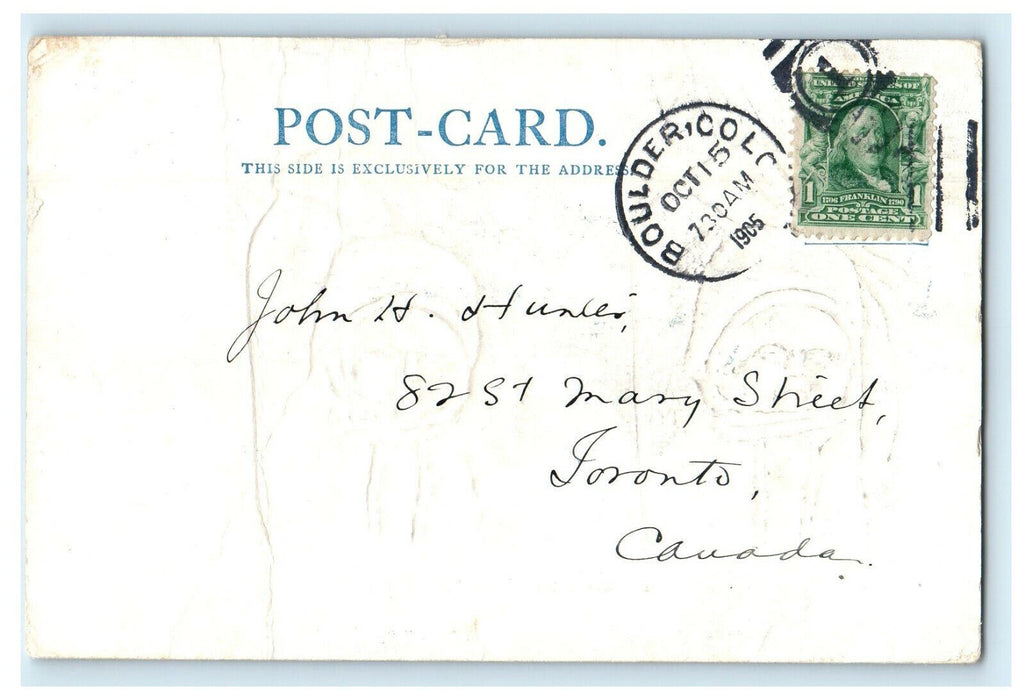 POST-CARD.
THIS SIDE IS EXCLUSIVELY FOR THE ADDRESS
BOULDER, COLO
OCT 15
730AM
1905
1
UNITED STATES OF
AMERICA
1 1
1706 FRANKLIN 1790
POSTAGE
ONE CENT
John H. Hunter,
82 St Mary Street,
Toronto,
Canada.